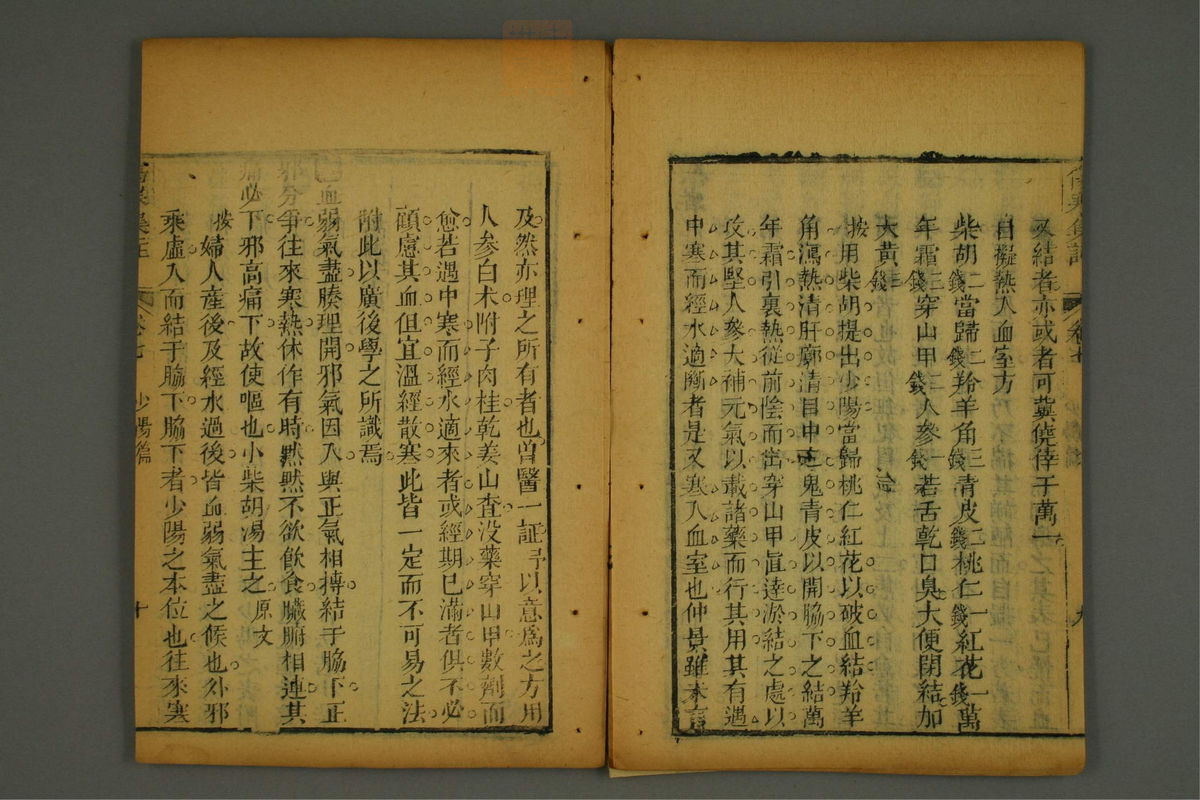 又結者亦或者可冀僥倖于萬一
自擬熱入血室方
柴胡二錢當歸二錢羚羊角三錢青皮二錢桃仁一錢紅花一錢萬
年霜三錢穿山甲二錢人參一錢若舌乾口臭大便閉結加
大黃三錢
按用柴胡提出少陽當歸桃仁紅花以破血結羚羊
角瀉熱清肝廓清目中之鬼青皮以開脇下之結萬
年霜引裏熱從前陰而出穿山甲直達淤結之處以
攻其堅人參大補元氣以載諸藥而行其用其有遇
中寒而經水適斷者是又寒入血室也仲景雖未言
卷七
九
及然亦理之所有者也曾醫一証予以意爲之方用
人參白朮附子肉桂乾姜山查没藥穿山甲數劑而
愈若遇中寒而經水適來者或經期已滿者俱不必
顧慮其血但宜溫經散寒此皆一定而不可易之法
附此以廣後學之所識焉
血弱氣盡腠理開邪氣因入與正氣相搏結于脇下正
邪分爭往來寒熱休作有時黙黙不欲飲食臟腑相連其
痛必下邪高痛下故使嘔也小柴胡湯主之原文
按婦人産後及經水過後皆血弱氣盡之候也外邪
乘虛入而結于脇下脇下者少陽之本位也往來寒
卷七
少陽篇
十